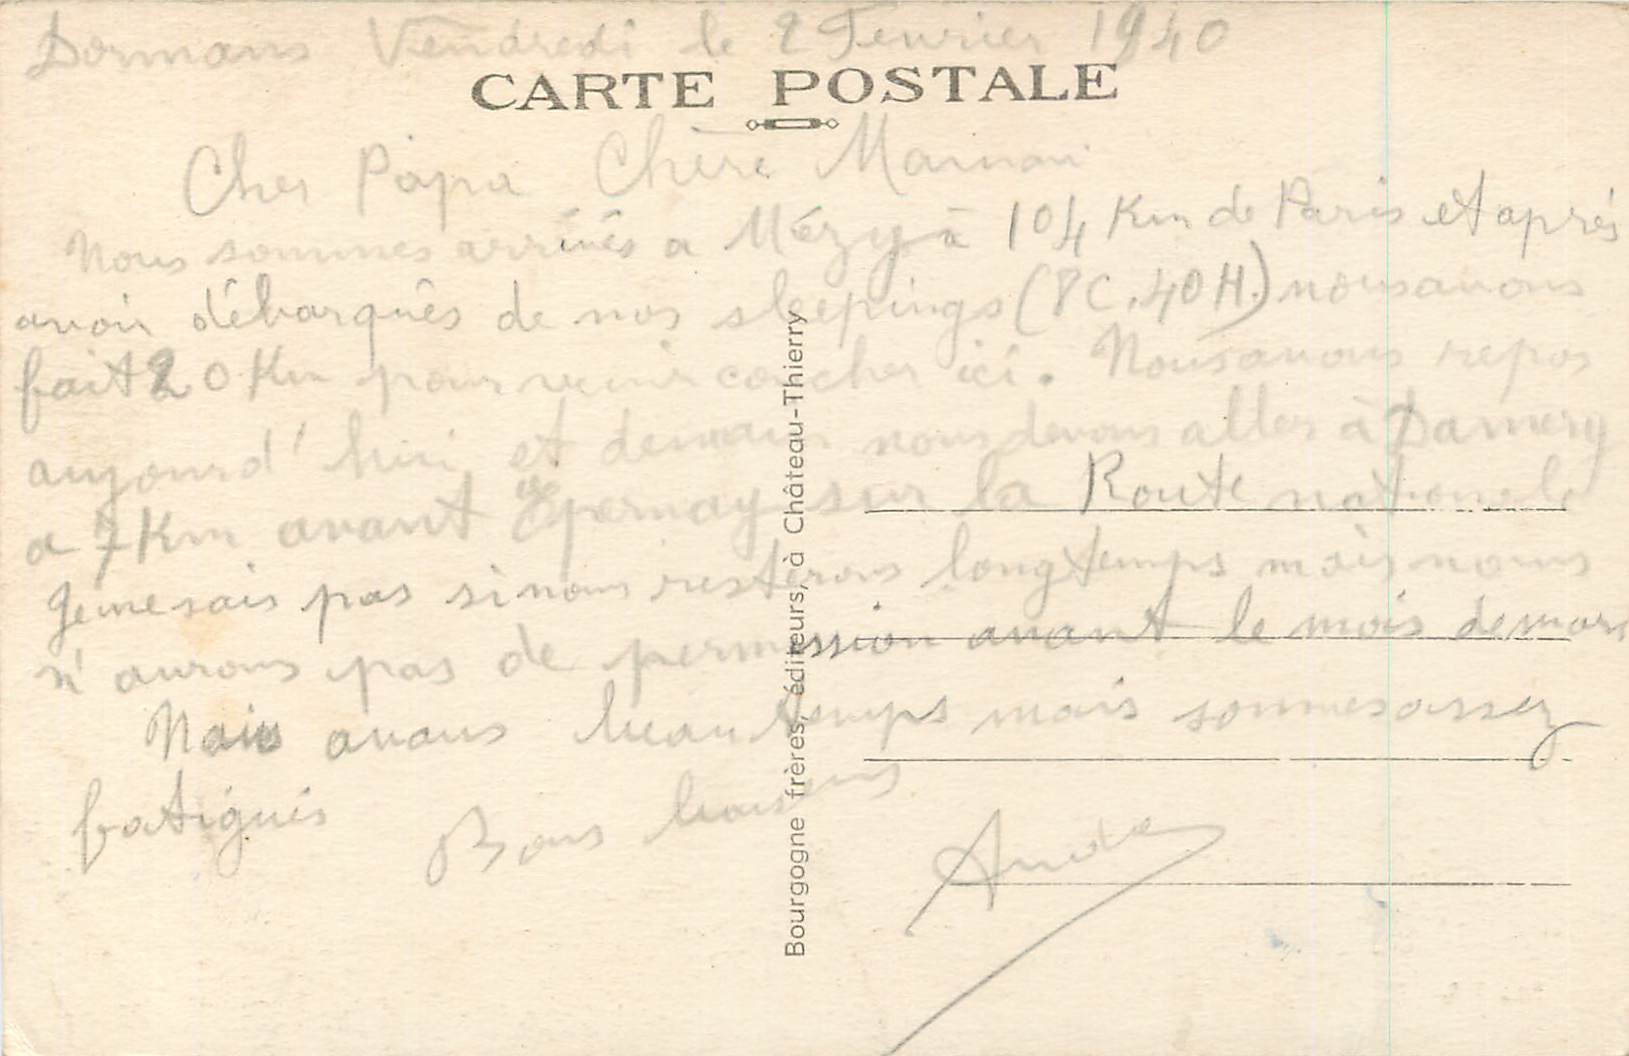 Dormans Vendredi le 2 Fevrier 1940
CARTE POSTALE
Cher Papa Chère Maman
Nous sommes arrivés a Mézy à 104 Km de Paris et après
avoir débarqués de nos sleepings (8C.40H.) nous avons
fait 20 Km pour venir coucher ici. Nous avons repos
aujourd'hui et demain nous devons aller à Damery
a 7 Km avant Epernay sur la Route nationale
Je ne sais pas si nous resterons longtemps mais nous
n'aurons pas de permission avant le mois de mars
Nous avons beau temps mais sommes assez
fatigués Bons baisers
André
Bourgogne frères, éditeurs, à Château-Thierry